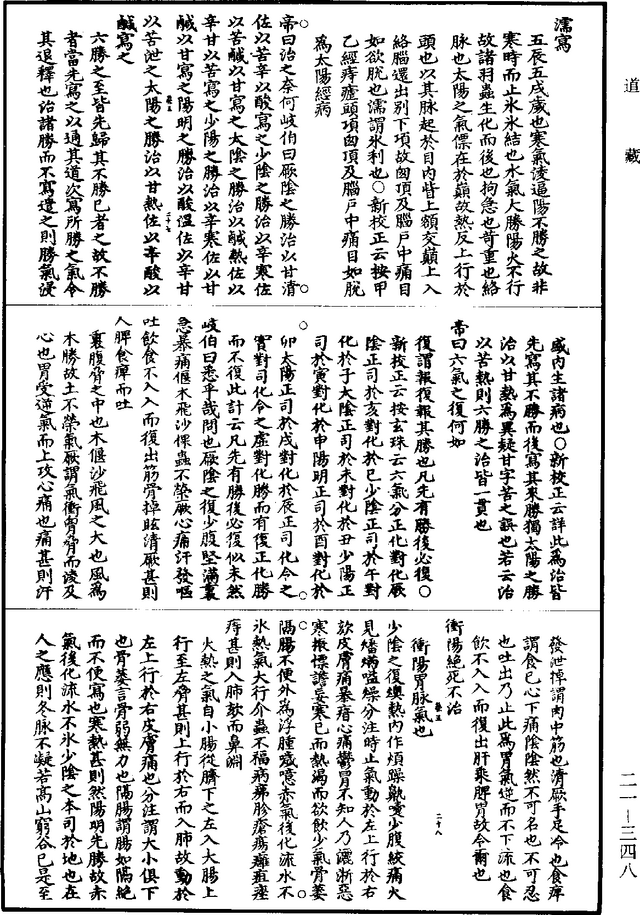 道藏
濡寫
五辰五戌歲也寒氣淩逼陽不勝之故非
寒時而止氷氷結也水氣大勝陽火不行
故諸羽蟲生化而後也拘急也苛重也絡
脉也太陽之氣標在於巔故熱反上行於
頭也以其脉起於目內眥上額交巔上入
絡腦還出別下項故囟頂及腦戶中痛目
如欲脫也濡謂氷利也○新校正云按甲
乙經痔瘧頭項囟頂及腦戶中痛目如脫
為太陽經病
帝曰治之奈何岐伯曰厥陰之勝治以甘清
佐以苦辛以酸寫之少陰之勝治以辛寒佐
以苦鹹以甘寫之太陰之勝治以鹹熱佐以
辛甘以苦寫之少陽之勝治以辛寒佐以甘
鹹以甘寫之陽明之勝治以酸溫佐以辛甘
以苦泄之太陽之勝治以甘熱佐以辛酸以
鹹寫之
六勝之至皆先歸其不勝已者之故不勝
者當先寫之以通其道次寫所勝之氣令
其退釋也治諸勝而不寫遣之則勝氣浸
盛內生諸病也○新校正云詳此為治皆
先寫其不勝而後寫其來勝獨太陽之勝
治以甘熱為異疑甘字苦之誤也若云治
以苦熱則六勝之治皆一貫也
帝曰六氣之復何如
復謂報復報其勝也凡先有勝後必復○
新校正云按玄珠云六氣分正化對化厥
陰正司於亥對化於巳少陰正司於午對
化於子太陰正司於未對化於丑少陽正
司於寅對化於申陽明正司於酉對化於
卯太陽正司於戌對化於辰正司化令之
實對司化令之虛對化勝而有復正化勝
而不復此計云凡先有勝後必復似未然
岐伯曰悉乎哉問也厥陰之復少腹堅滿裏
急暴痛偃木飛沙倮蟲不榮厥心痛汗發嘔
吐飲食不入入而復出筋骨掉眩清厥甚則
入脾食痺而吐
裏腹脅之中也木偃沙飛風之大也風為
木勝故土不榮氣厥謂氣衝胷脅而淩及
心也胃受逆氣而上攻心痛也痛甚則汗
發泄掉謂肉中筋也清厥手足冷也食痺
謂食已心下痛陰陰然不可名也不可忍
也吐出乃止此為胃氣逆而不下流也食
飲不入入而復出肝乘脾胃故令爾也
衝陽絕死不治
衝陽胃脉氣也
少陰之復燠熱內作煩躁鼽嚏少腹絞痛火
見燔焫嗌燥分注時止氣動於左上行於右
欬皮膚痛暴瘖心痛鬱冒不知人乃灑淅惡
寒振慄譫妄寒已而熱渴而欲飲少氣骨萎
隔腸不便外為浮腫噦噫赤氣後化流水不
氷熱氣大行介蟲不福病疿胗瘡瘍癰疽痤
痔甚則入肺欬而鼻淵
火熱之氣自小腸從臍下之左入大腸上
行至左脅甚則上行於右而入肺故動於
左上行於右皮膚痛也分注謂大小俱下
也骨萎言骨弱無力也隔腸謂腸如隔絕
而不便寫也寒熱甚則然陽明先勝故赤
氣後化流水不氷少陰之本司於地也在
人之應則冬脉不凝若高山窮谷已是至
二一—三四八